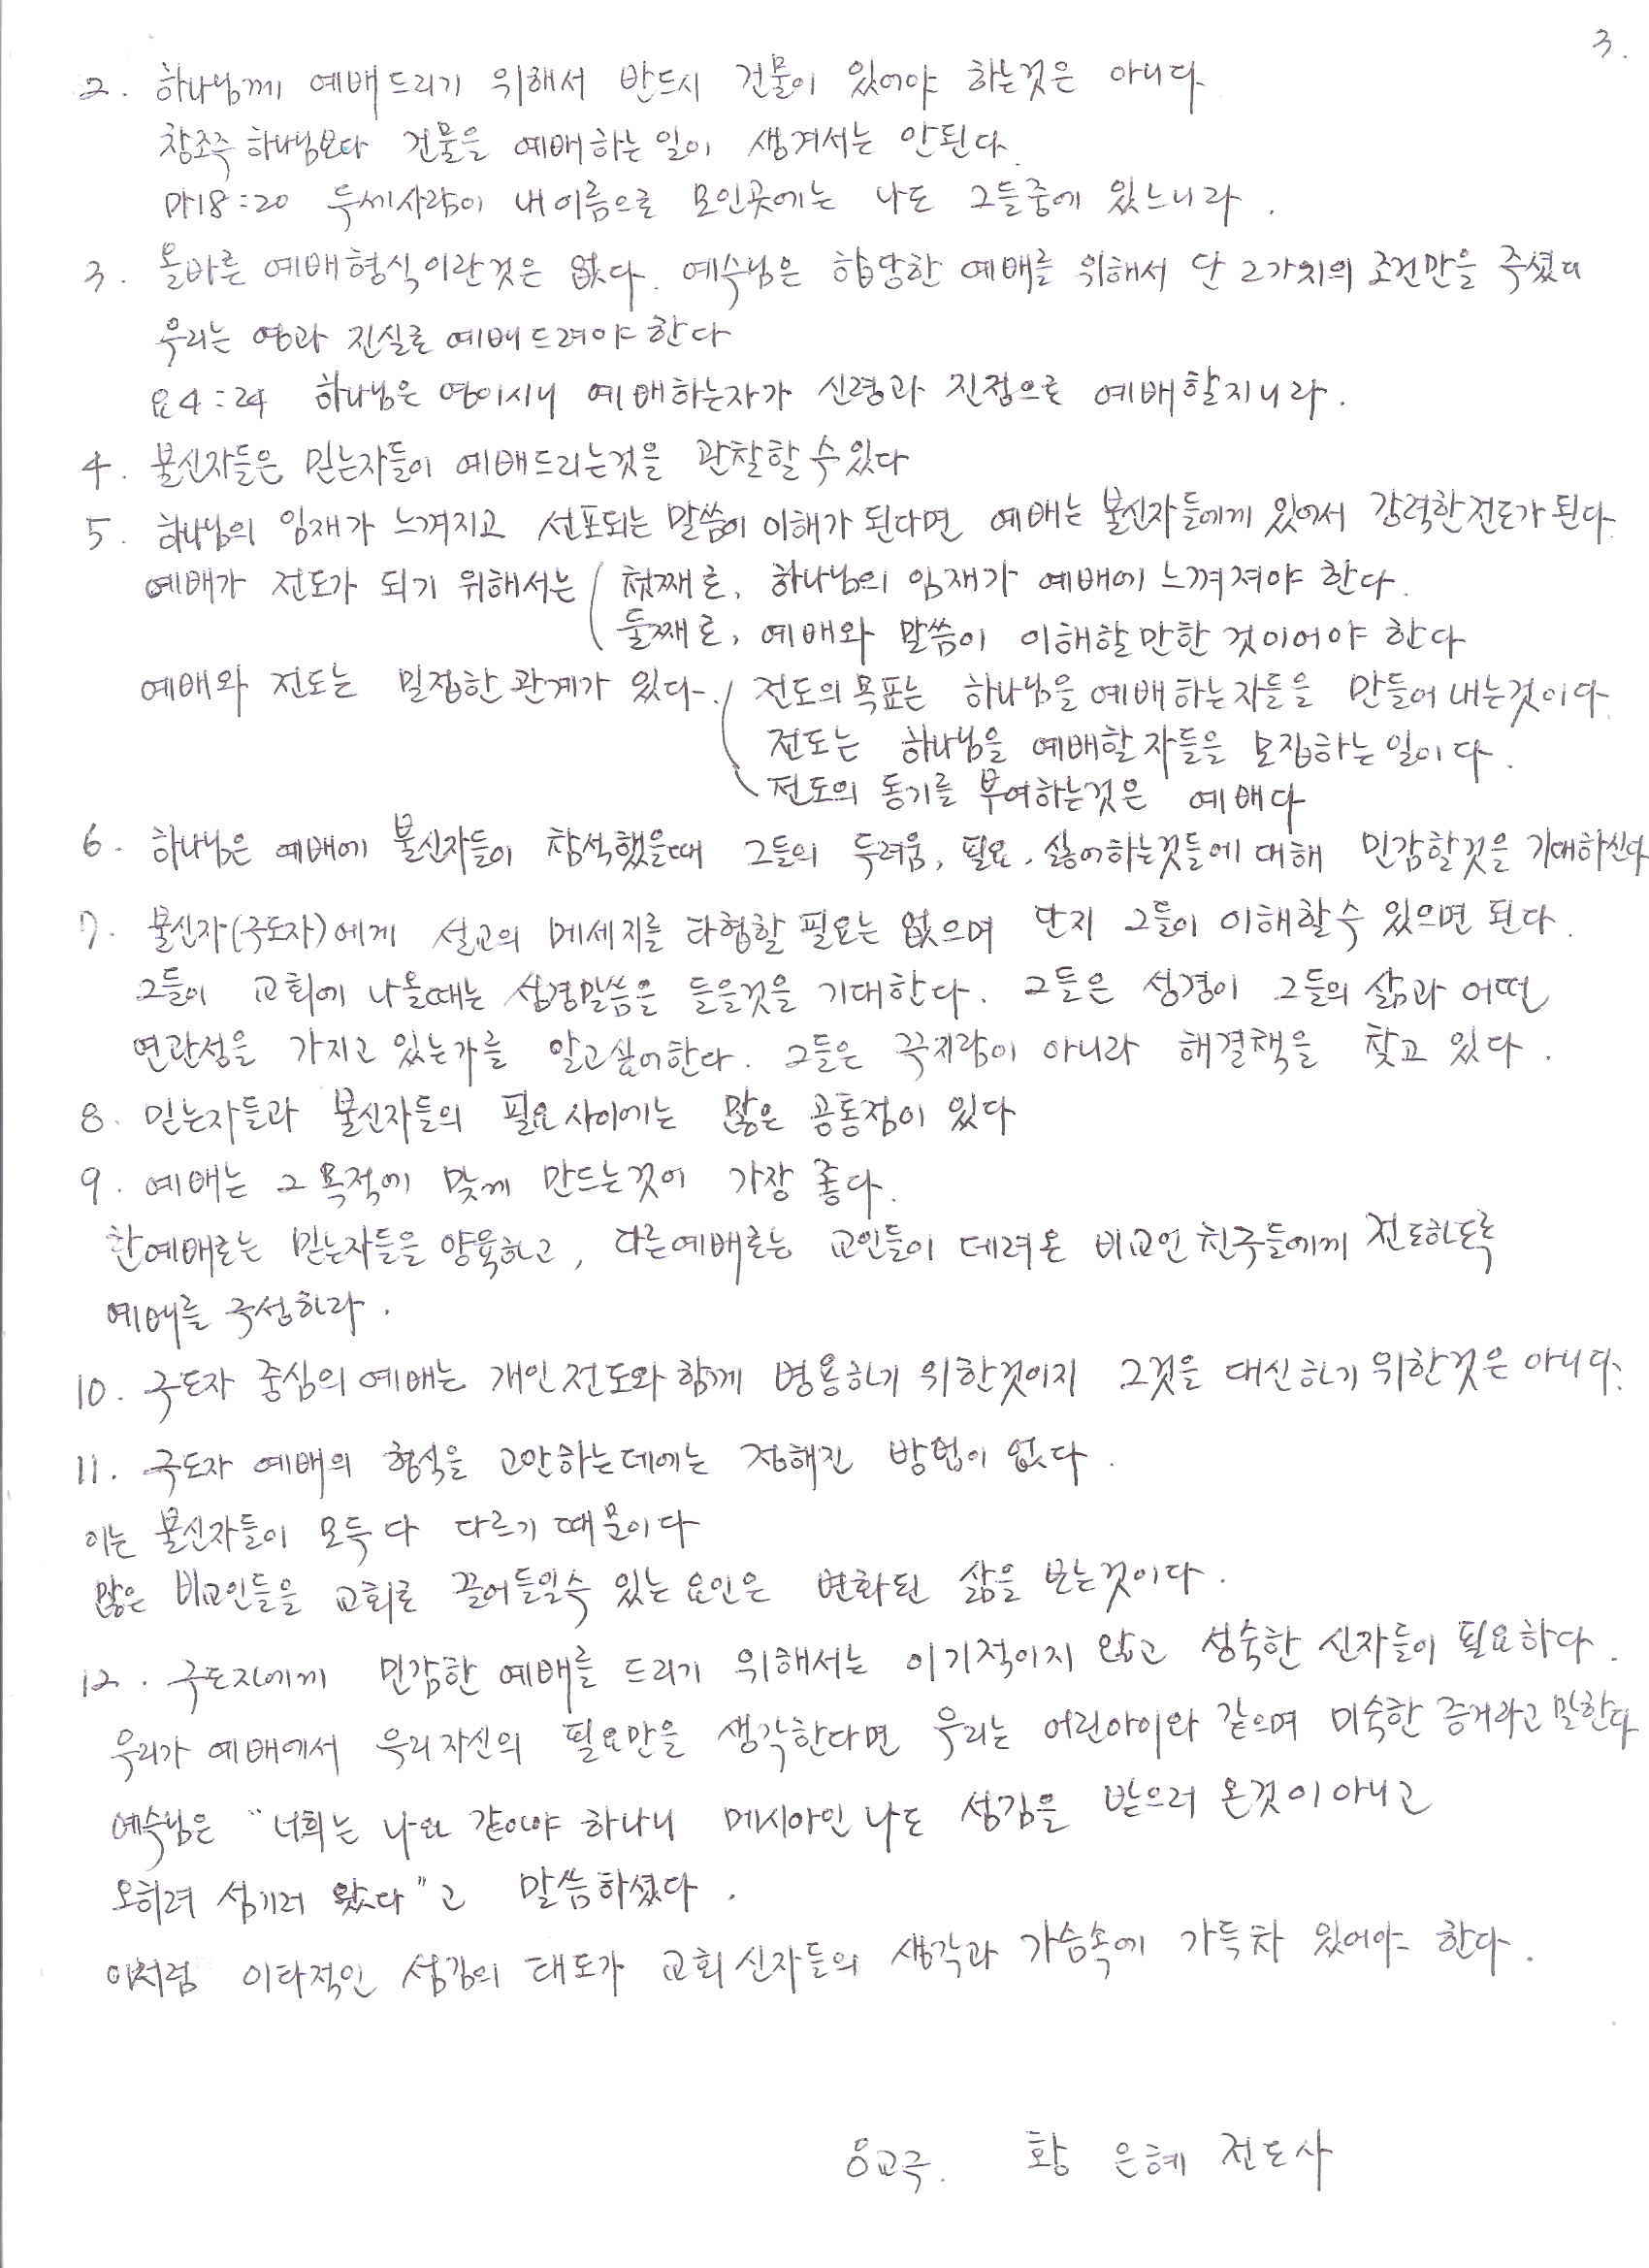 3.
2. 하나님께 예배드리기 위해서 반드시 건물이 있어야 하는것은 아니다
창조주 하나님보다 건물을 예배하는 일이 생겨서는 안된다.
마18:20 두세사람이 내 이름으로 모인곳에는 나도 그들중에 있느니라.
3. 올바른 예배형식이란것은 없다. 예수님은 합당한 예배를 위해서 단 2가지의 조건만을 주셨다
우리는 영과 진실로 예배드려야 한다
요4:24 하나님은 영이시니 예배하는자가 신령과 진정으로 예배할지니라.
4. 불신자들은 믿는자들이 예배드리는것을 관찰할 수 있다
5. 하나님의 임재가 느껴지고 선포되는 말씀이 이해가 된다면 예배는 불신자들에게 있어서 강력한 전도가 된다.
예배가 전도가 되기 위해서는 ( 첫째로, 하나님의 임재가 예배에 느껴져야 한다.
둘째로, 예배와 말씀이 이해할만한 것이어야 한다
예배와 전도는 밀접한 관계가 있다. ( 전도의 목표는 하나님을 예배하는자들을 만들어 내는것이다.
전도는 하나님을 예배할 자들을 모집하는 일이다.
전도의 동기를 부여하는것은 예배다
6. 하나님은 예배에 불신자들이 참석했을때 그들의 두려움, 필요, 싫어하는것들에 대해 민감할것을 기대하신다
7. 불신자(구도자)에게 설교의 메세지를 타협할 필요는 없으며 단지 그들이 이해할수 있으면 된다.
그들이 교회에 나올때는 성경말씀을 들을것을 기대한다. 그들은 성경이 그들의 삶과 어떤
연관성을 가지고 있는가를 알고싶어한다. 그들은 꾸지람이 아니라 해결책을 찾고 있다.
8. 믿는자들과 불신자들의 필요사이에는 많은 공통점이 있다
9. 예배는 그 목적에 맞게 만드는것이 가장 좋다.
한예배로는 믿는자들을 양육하고, 다른예배로는 교인들이 데려온 비교인 친구들에게 전도하도록
예배를 구성하라.
10. 구도자 중심의 예배는 개인전도와 함께 병용하기 위한것이지 그것을 대신하기 위한것은 아니다.
11. 구도자 예배의 형식을 고안하는데에는 정해진 방법이 없다.
이는 불신자들이 모두 다 다르기 때문이다
많은 비교인들을 교회로 끌어들일수 있는 요인은 변화된 삶을 보는것이다.
12. 구도자에게 민감한 예배를 드리기 위해서는 이기적이지 않고 성숙한 신자들이 필요하다.
우리가 예배에서 우리자신의 필요만을 생각한다면 우리는 어린아이와 같으며 미숙한 증거라고 말한다
예수님은 "너희는 나와 같아야 하나니 메시아인 나도 섬김을 받으러 온것이 아니고
오히려 섬기러 왔다"고 말씀하셨다.
이처럼 이타적인 섬김의 태도가 교회 신자들의 생각과 가슴속에 가득차 있어야 한다.
응교국. 황 은혜 전도사